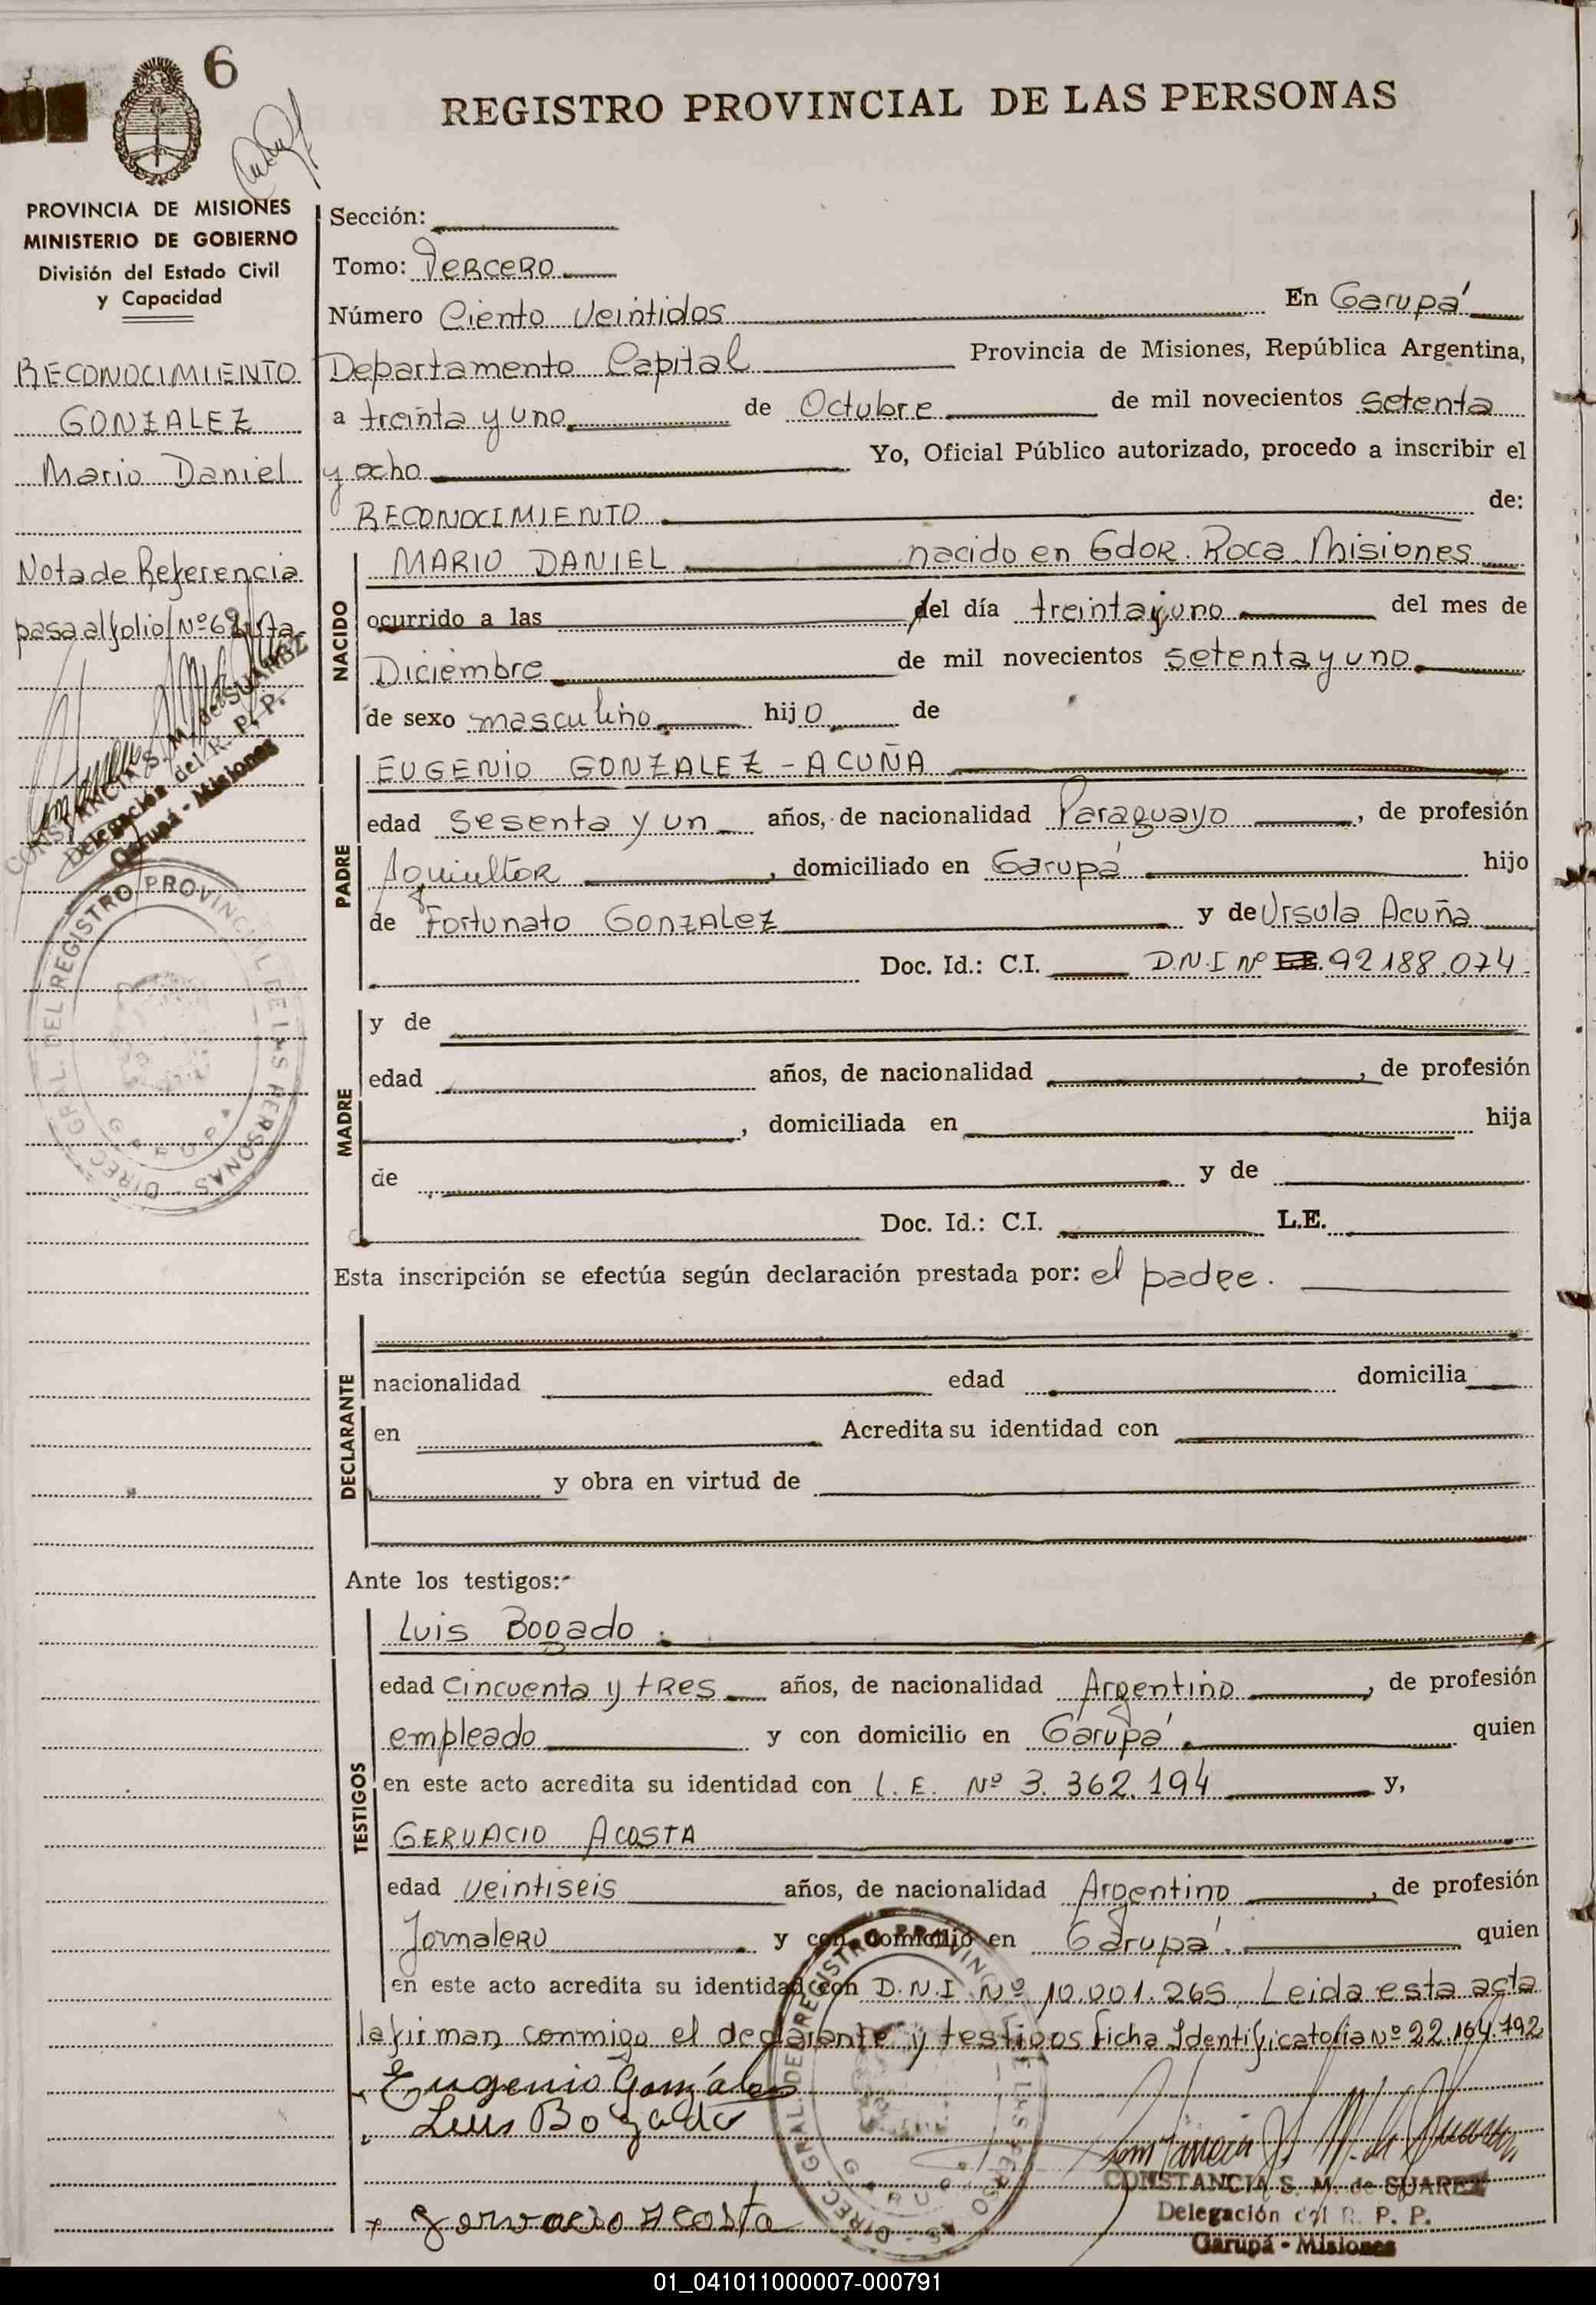 6
REGISTRO PROVINCIAL DE LAS PERSONAS
PROVINCIA DE MISIONES
MINISTERIO DE GOBIERNO
División del Estado Civil
y Capacidad
RECONOCIMIENTO
GONZALEZ
Mario Daniel
Nota de Referencia
pasa al folio Nº 62
CONSTANCIA S. M. de SUAREZ
Delegación del R. P. P.
Garupá - Misiones
DIREC. GRAL. DEL REGISTRO PROVINCIAL DE LAS PERSONAS
GARUPA
Sección:
Tomo: Tercero
Número Ciento Veintidos En Garupá
Departamento Capital Provincia de Misiones, República Argentina,
a treinta y uno de Octubre de mil novecientos setenta
y ocho Yo, Oficial Público autorizado, procedo a inscribir el
RECONOCIMIENTO de:
NACIDO
MARIO DANIEL nacido en Gdor. Roca. Misiones
ocurrido a las del día treinta y uno del mes de
Diciembre de mil novecientos setenta y uno
de sexo masculino hijo de
PADRE
EUGENIO GONZALEZ - ACUÑA
edad Sesenta y un años, de nacionalidad Paraguayo, de profesión
Agricultor, domiciliado en Garupá hijo
de Fortunato Gonzalez y de Ursula Acuña
Doc. Id.: C.I. D.N.I Nº L.E. 92188.074
MADRE
y de
edad años, de nacionalidad , de profesión
, domiciliada en hija
de y de
Doc. Id.: C.I. L.E.
Esta inscripción se efectúa según declaración prestada por: el padre.
DECLARANTE
nacionalidad edad domicilia
en Acredita su identidad con
y obra en virtud de
Ante los testigos:
TESTIGOS
Luis Bogado
edad cincuenta y tres años, de nacionalidad Argentino, de profesión
empleado y con domicilio en Garupá quien
en este acto acredita su identidad con L.E. Nº 3.362.194 y,
GERVACIO ACOSTA
edad veintiseis años, de nacionalidad Argentino, de profesión
Jornalero y con domicilio en Garupá. quien
en este acto acredita su identidad con D.N.I Nº 10.001.265. Leida esta acta
la firman conmigo el declarante y testigos ficha Identificatoria Nº 22.164.792
Eugenio González
Luis Bogado
Gervacio Acosta
DIREC. GRAL. DEL REGISTRO PROVINCIAL DE LAS PERSONAS
GARUPA
CONSTANCIA S. M. de SUAREZ
Delegación del R. P. P.
Garupá - Misiones
01_041011000007-000791